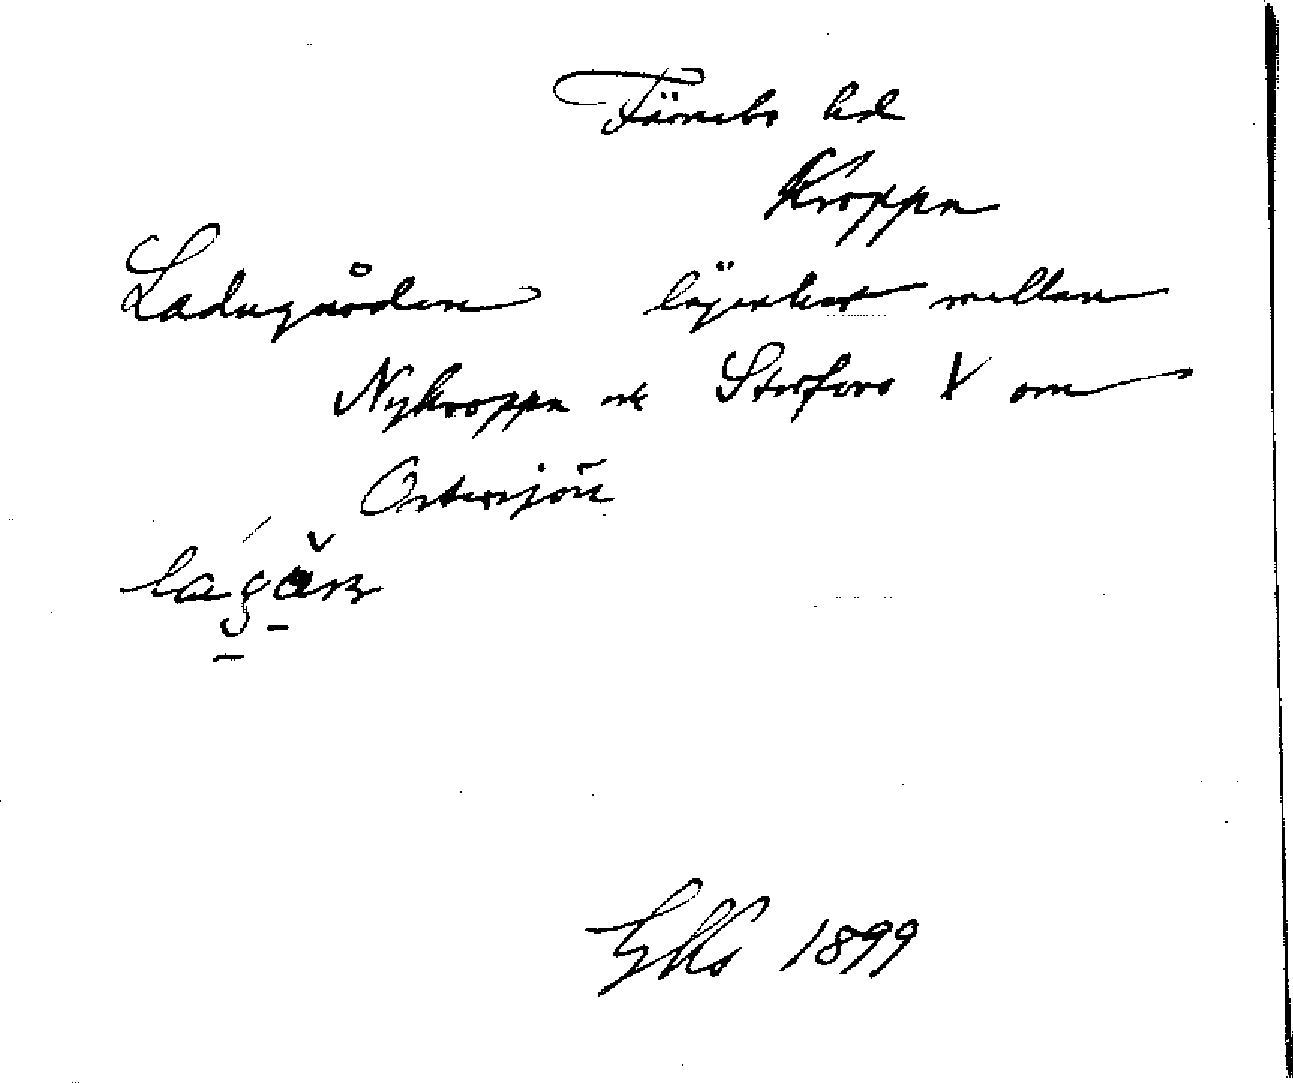 Färnebo hd
Kroppa
Ladugården lägenhet mellan
Nykroppa ock Storfors V om
Östersjön
Eks 1899